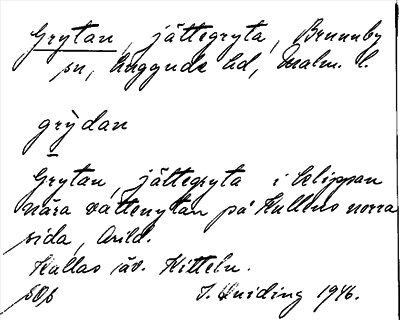 Grytan, jättegryta, Brunnby
sn, Luggude hd, Malm. l.
grỳdan
Grytan, jättegryta i klippan
nära vattenytan på Kullens norra
sida, Arild.
Kallas äv. Kitteln.
SOp J. Sniding 1946.